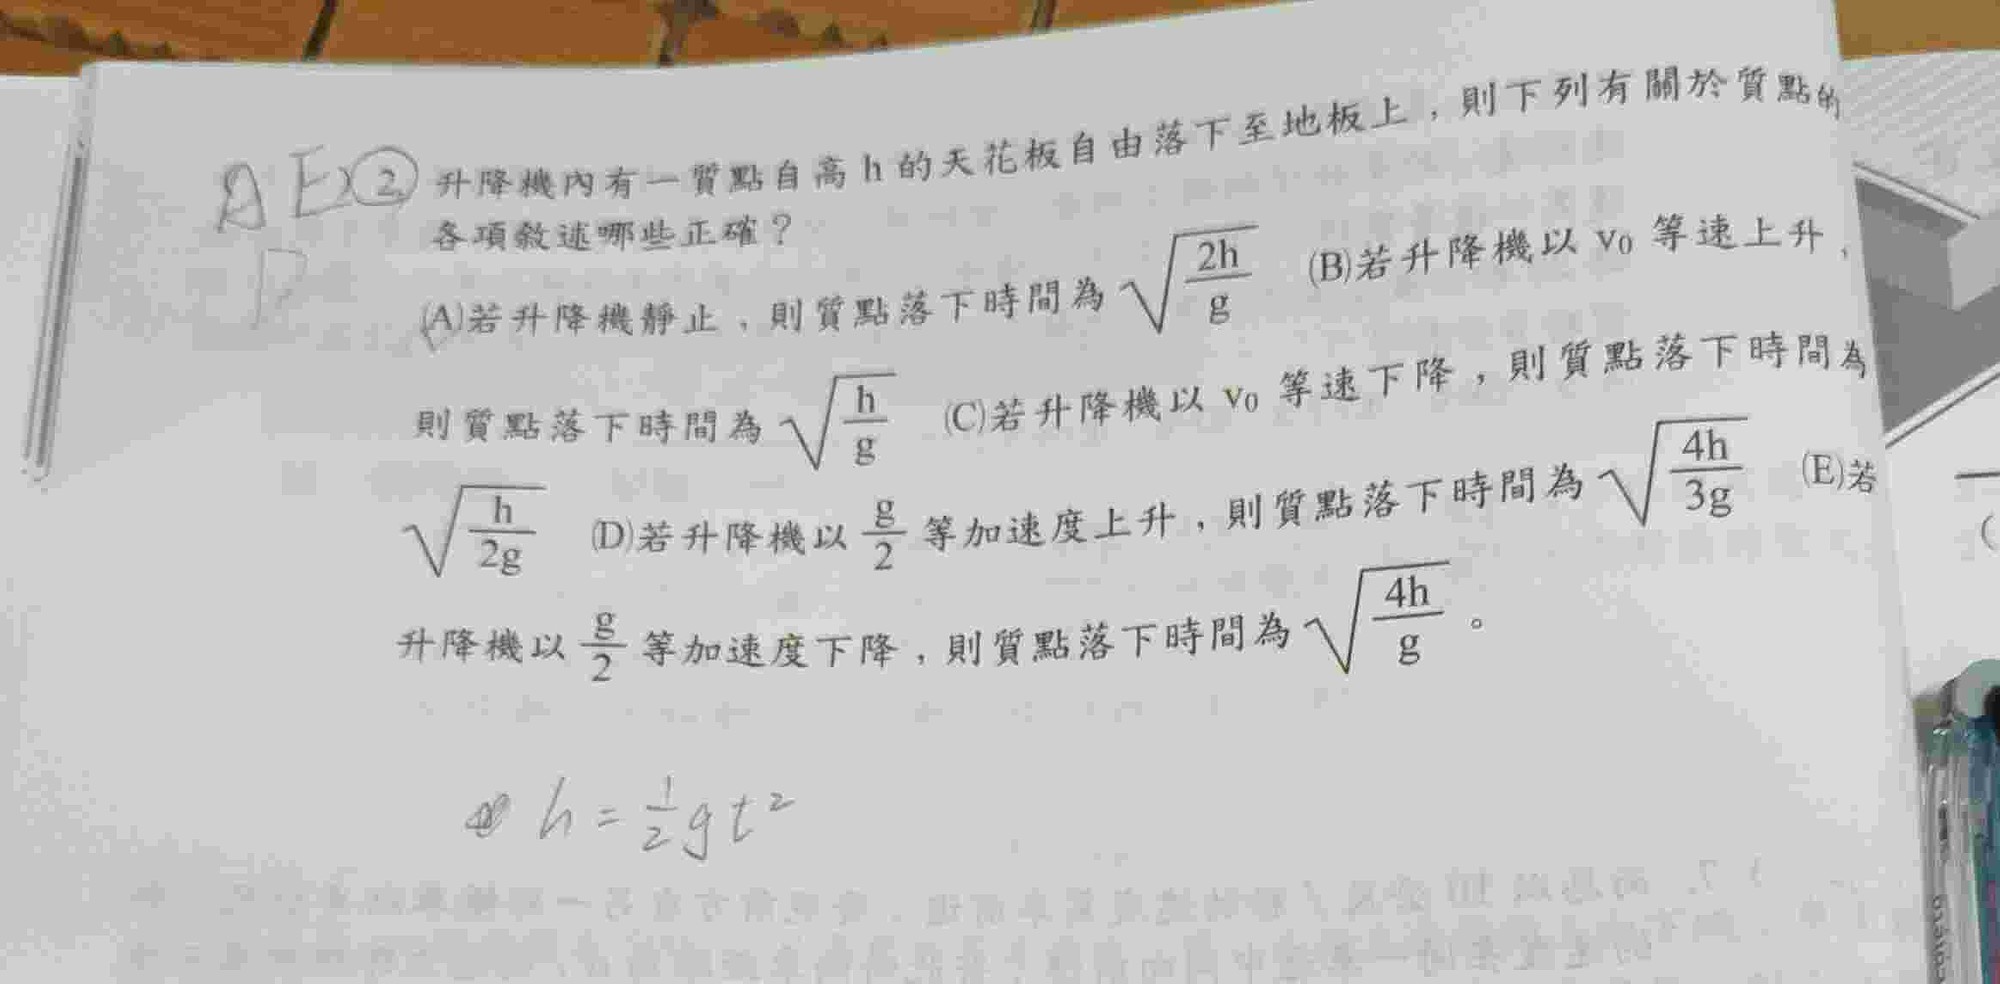 A E 2 升降機內有一質點自高 h 的天花板自由落下至地板上，則下列有關於質點的
D 各項敘述哪些正確？
(A)若升降機靜止，則質點落下時間為 √(2h/g) (B)若升降機以 v₀ 等速上升，
則質點落下時間為 √(h/g) (C)若升降機以 v₀ 等速下降，則質點落下時間為
√(h/2g) (D)若升降機以 g/2 等加速度上升，則質點落下時間為 √(4h/3g) (E)若
升降機以 g/2 等加速度下降，則質點落下時間為 √(4h/g)。
h = 1/2 g t²